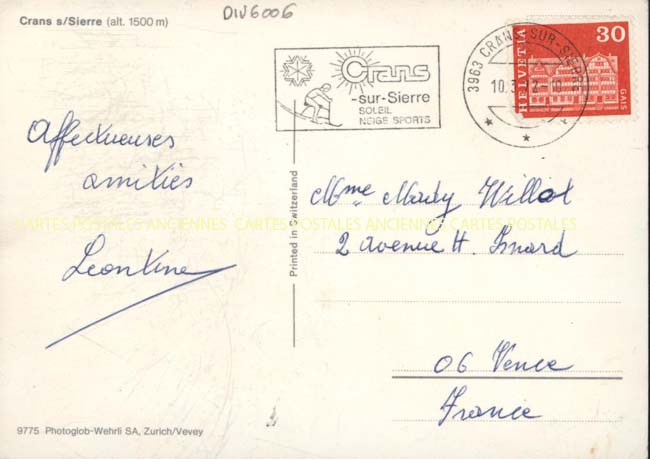 DIV6006
Crans s/Sierre (alt. 1500 m)
Crans
-sur-Sierre
SOLEIL
NEIGE SPORTS
3963 CRANS-SUR-SIERRE
10.3
HELVETIA
30
GAIS
Affectueuses
amitiés
Leontine
Printed in Switzerland
Mme Mady Willot
2 avenue H. Isnard
06 Vence
France
CARTES POSTALES ANCIENNES CARTES POSTALES ANCIENNES CARTES POSTALES
9775 Photoglob-Wehrli SA, Zurich/Vevey